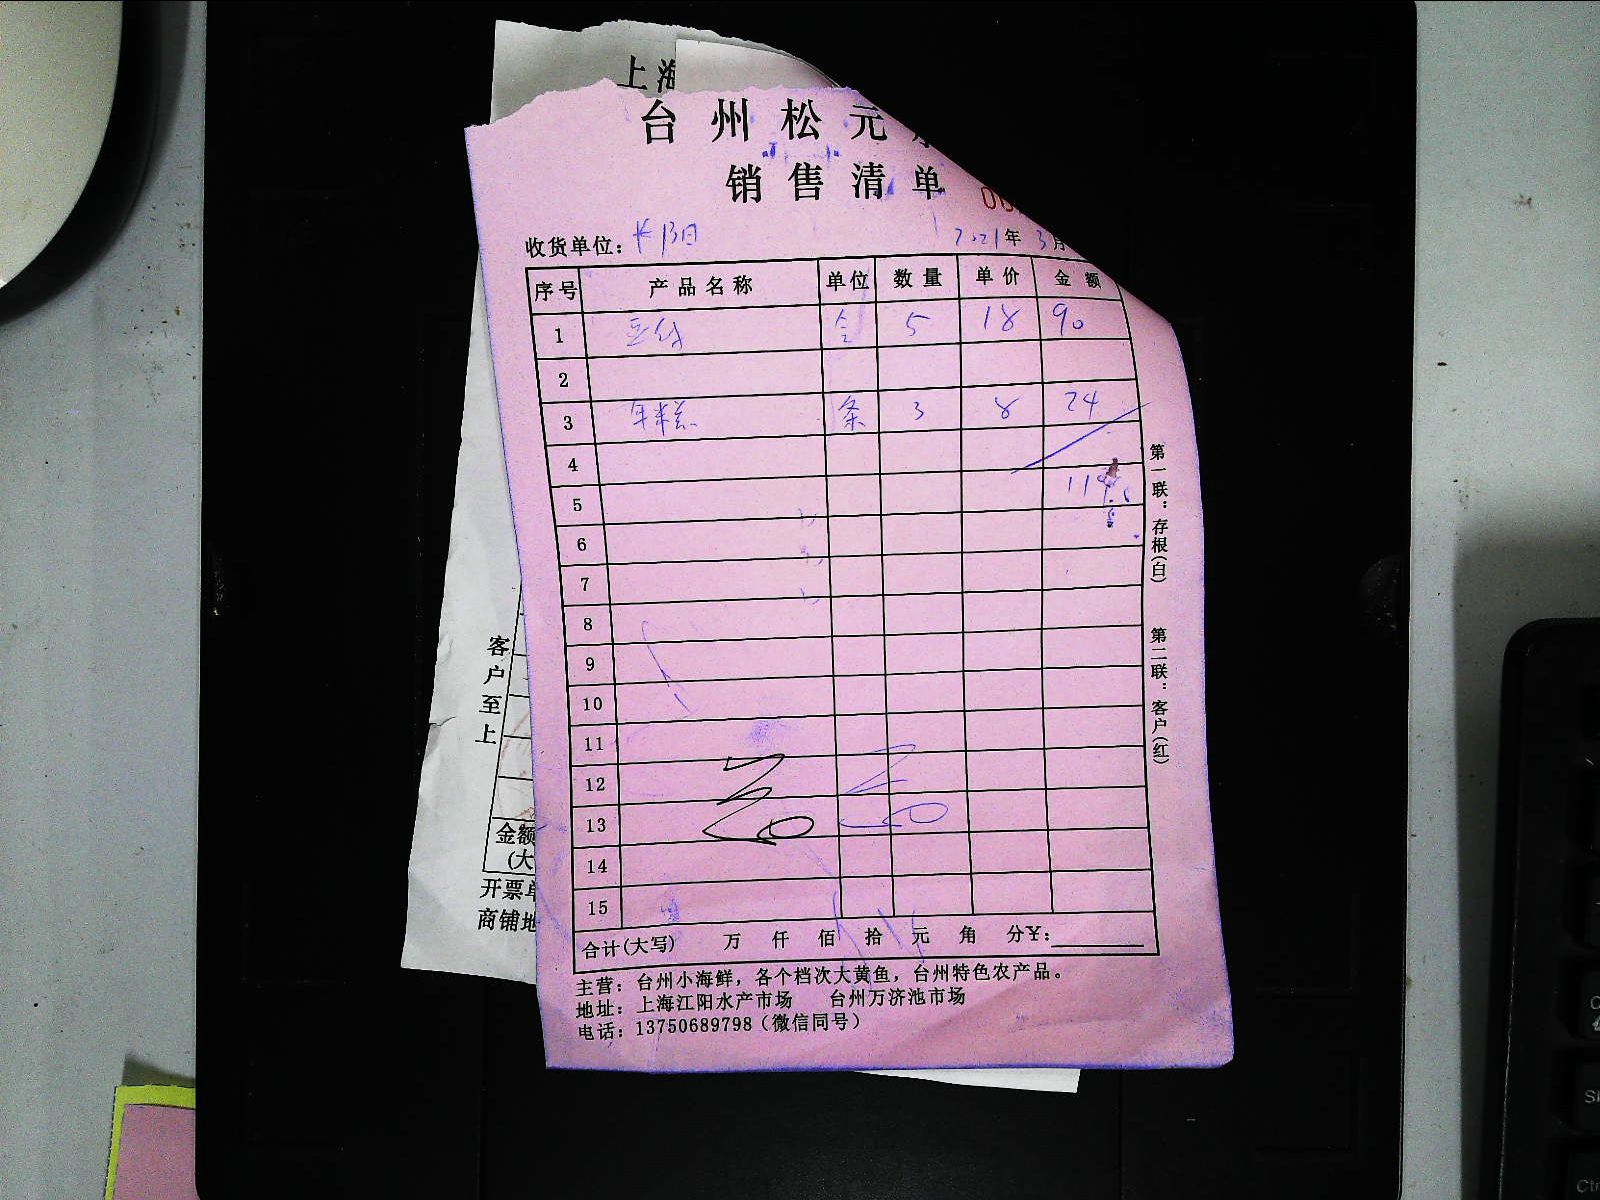 上海
台州松元
销售清单
00
收货单位：长阳
2021年3月
序号 产品名称 单位 数量 单价 金额
1 豆付 合 5 18 90
2
3 年糕 条 3 8 24
4
5 114
6
7
8
9
10
11
12
13
14
15
合计(大写) 万 仟 佰 拾 元 角 分¥：
主营：台州小海鲜，各个档次大黄鱼，台州特色农产品。
地址：上海江阳水产市场 台州万济池市场
电话：13750689798（微信同号）
第一联：存根(白)
第二联：客户(红)
客户至上
金额
(大
开票单
商铺地